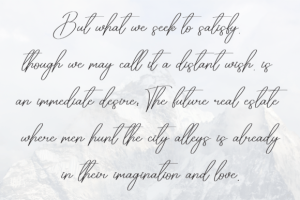 But what we seek to satisfy.
though we may call it a distant wish. is
an immediate desire, The future real estate
where men hunt the city alleys is already
in their imagination and love.